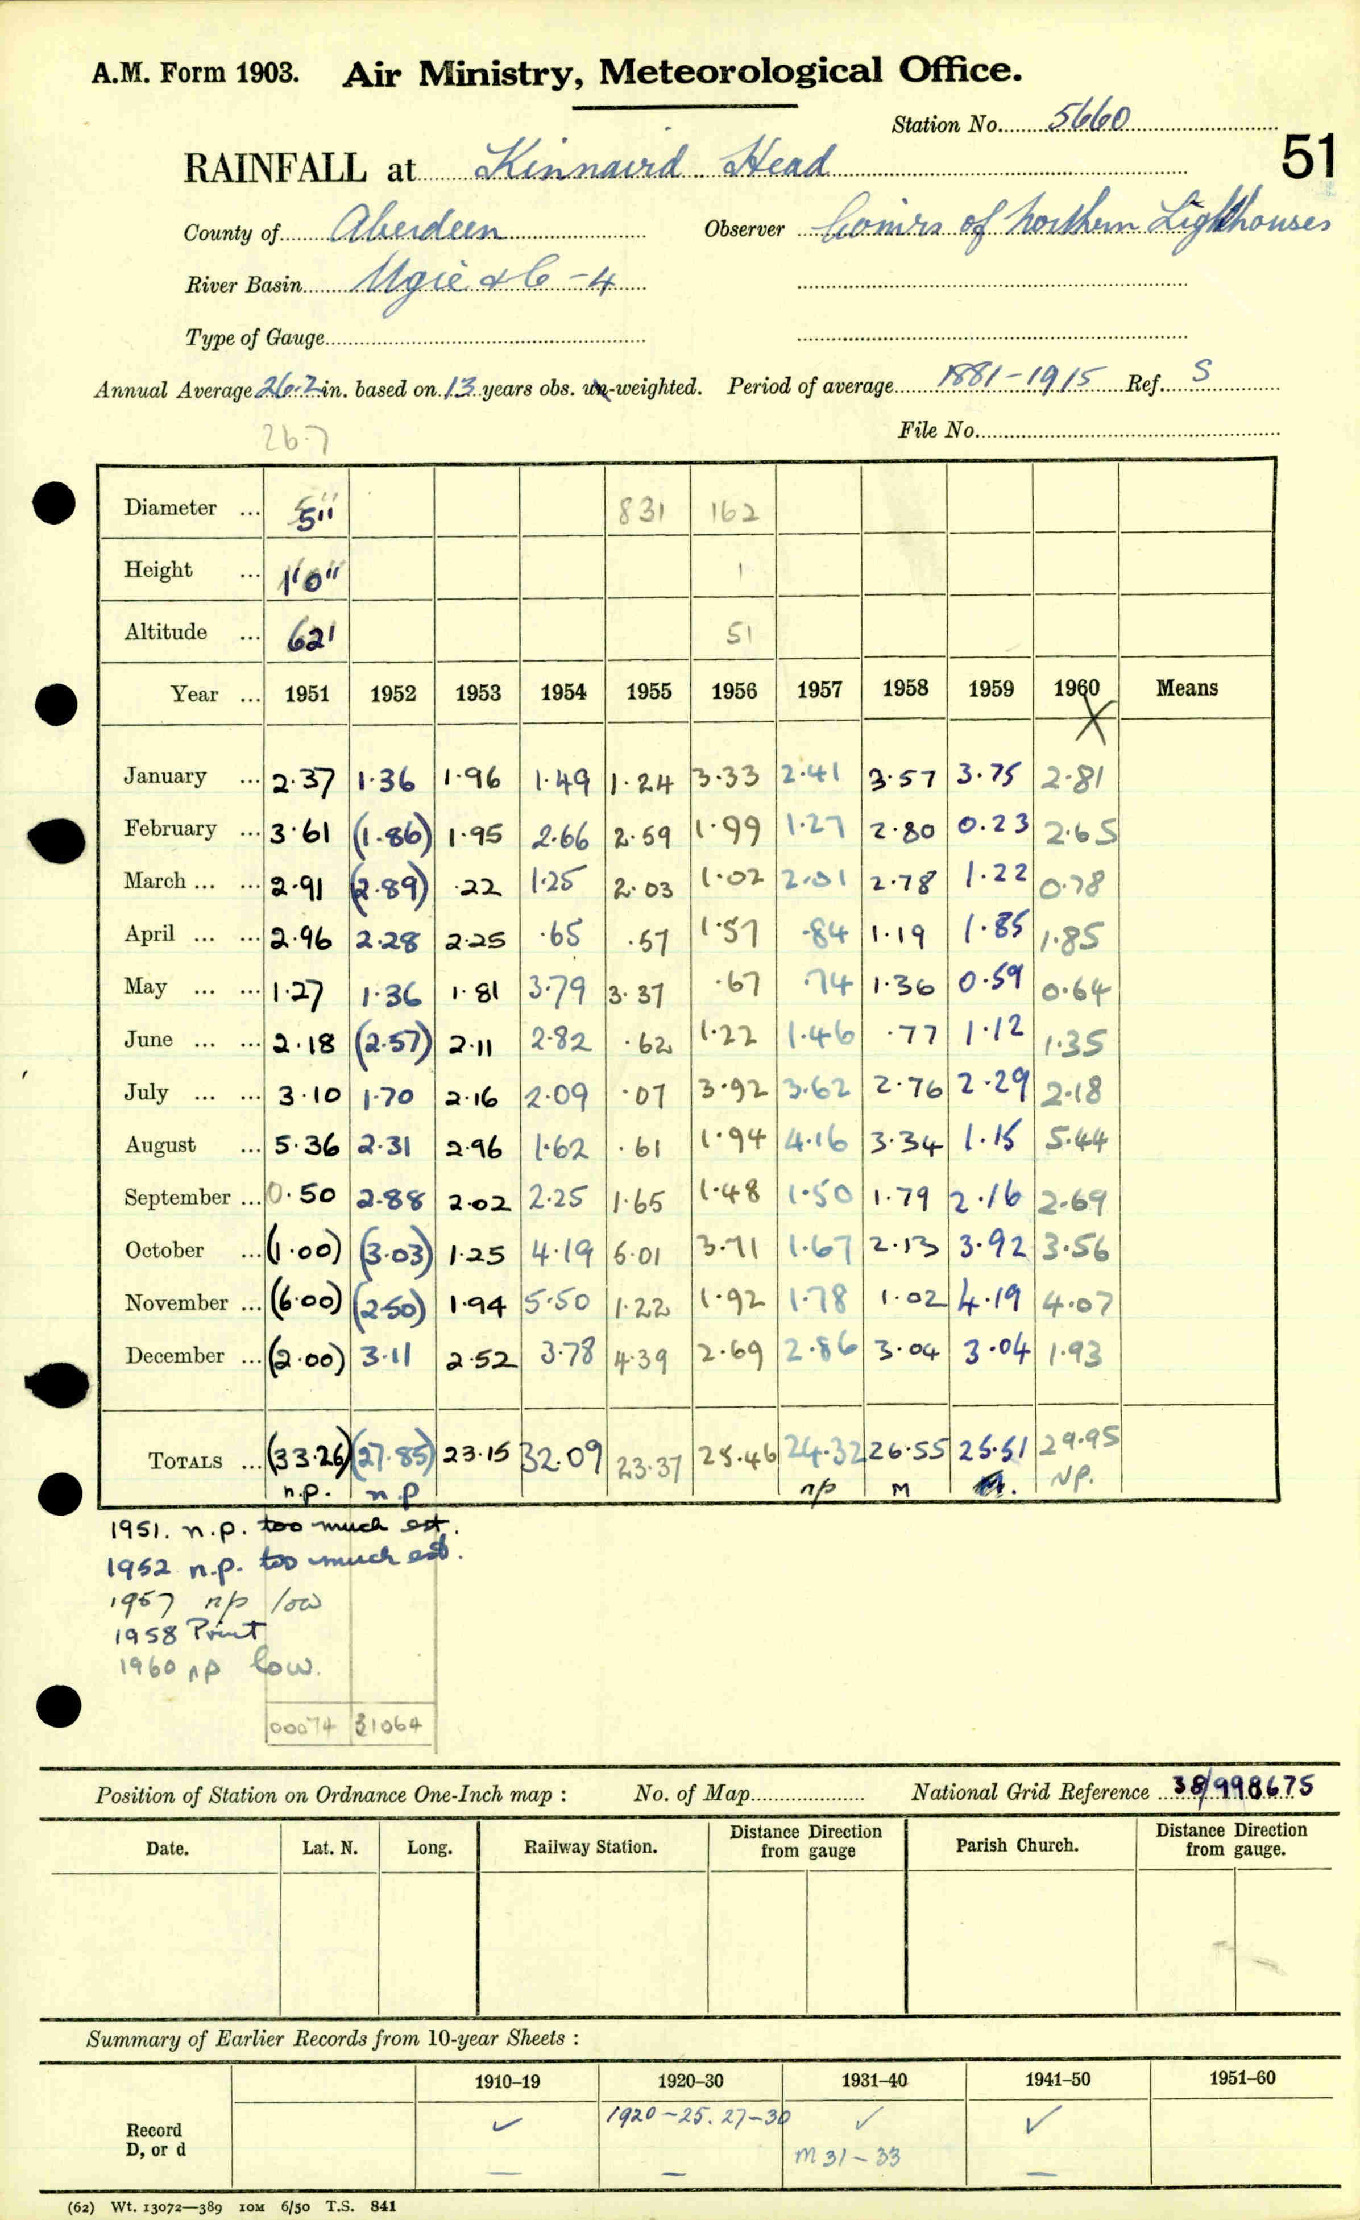 A.M. Form 1903. Air Ministry, Meteorological Office.
Station No. 5660
51
RAINFALL at Kinnaird Head
County of Aberdeen Observer Comrs of Northern Lighthouses
River Basin Ugie & C - 4
Type of Gauge
Annual Average 26.2 in. based on 13 years obs. un-weighted. Period of average 1881-1915 Ref. S
26.7
File No.
Diameter ... 5" 831 162
Height ... 1'0" 1
Altitude ... 62' 51
Year ... 1951 1952 1953 1954 1955 1956 1957 1958 1959 1960 Means
X
January ... 2.37 1.36 1.96 1.49 1.24 3.33 2.41 3.57 3.75 2.81
February ... 3.61 (1.86) 1.95 2.66 2.59 1.99 1.27 2.80 0.23 2.65
March ... ... 2.91 (2.89) .22 1.25 2.03 1.02 2.01 2.78 1.22 0.78
April ... ... 2.96 2.28 2.25 .65 .57 1.57 .84 1.19 1.85 1.85
May ... ... 1.27 1.36 1.81 3.79 3.37 .67 .74 1.36 0.59 0.64
June ... ... 2.18 (2.57) 2.11 2.82 .62 1.22 1.46 .77 1.12 1.35
July ... ... 3.10 1.70 2.16 2.09 .07 3.92 3.62 2.76 2.29 2.18
August ... 5.36 2.31 2.96 1.62 .61 1.94 4.16 3.34 1.15 5.44
September ... 0.50 2.88 2.02 2.25 1.65 1.48 1.50 1.79 2.16 2.69
October ... (1.00) (3.03) 1.25 4.19 5.01 3.71 1.67 2.13 3.92 3.56
November ... (6.00) (2.50) 1.94 5.50 1.22 1.92 1.78 1.02 4.19 4.07
December ... (2.00) 3.11 2.52 3.78 4.39 2.69 2.86 3.04 3.04 1.93
TOTALS ... (33.26) (27.85) 23.15 32.09 23.37 25.46 24.32 26.55 25.51 29.95
n.p. n.p np M NP.
1951. n.p. too much est.
1952 n.p. too much est.
1957 np low
1958 Print
1960 np low.
00074 31064
Position of Station on Ordnance One-Inch map : No. of Map National Grid Reference 38/998675
Date. Lat. N. Long. Railway Station. Distance Direction from gauge Parish Church. Distance Direction from gauge.
Summary of Earlier Records from 10-year Sheets :
1910–19 1920–30 1931–40 1941–50 1951–60
Record ✓ 1920-25. 27-30 ✓ ✓
D, or d — — M 31-33 —
(62) Wt. 13072—389 10M 6/50 T.S. 841